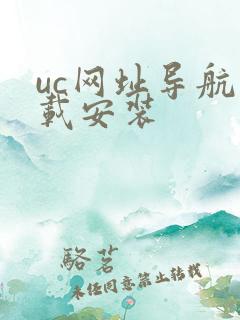 uc网址导航
载安装
骆茗
未经同意禁止转载